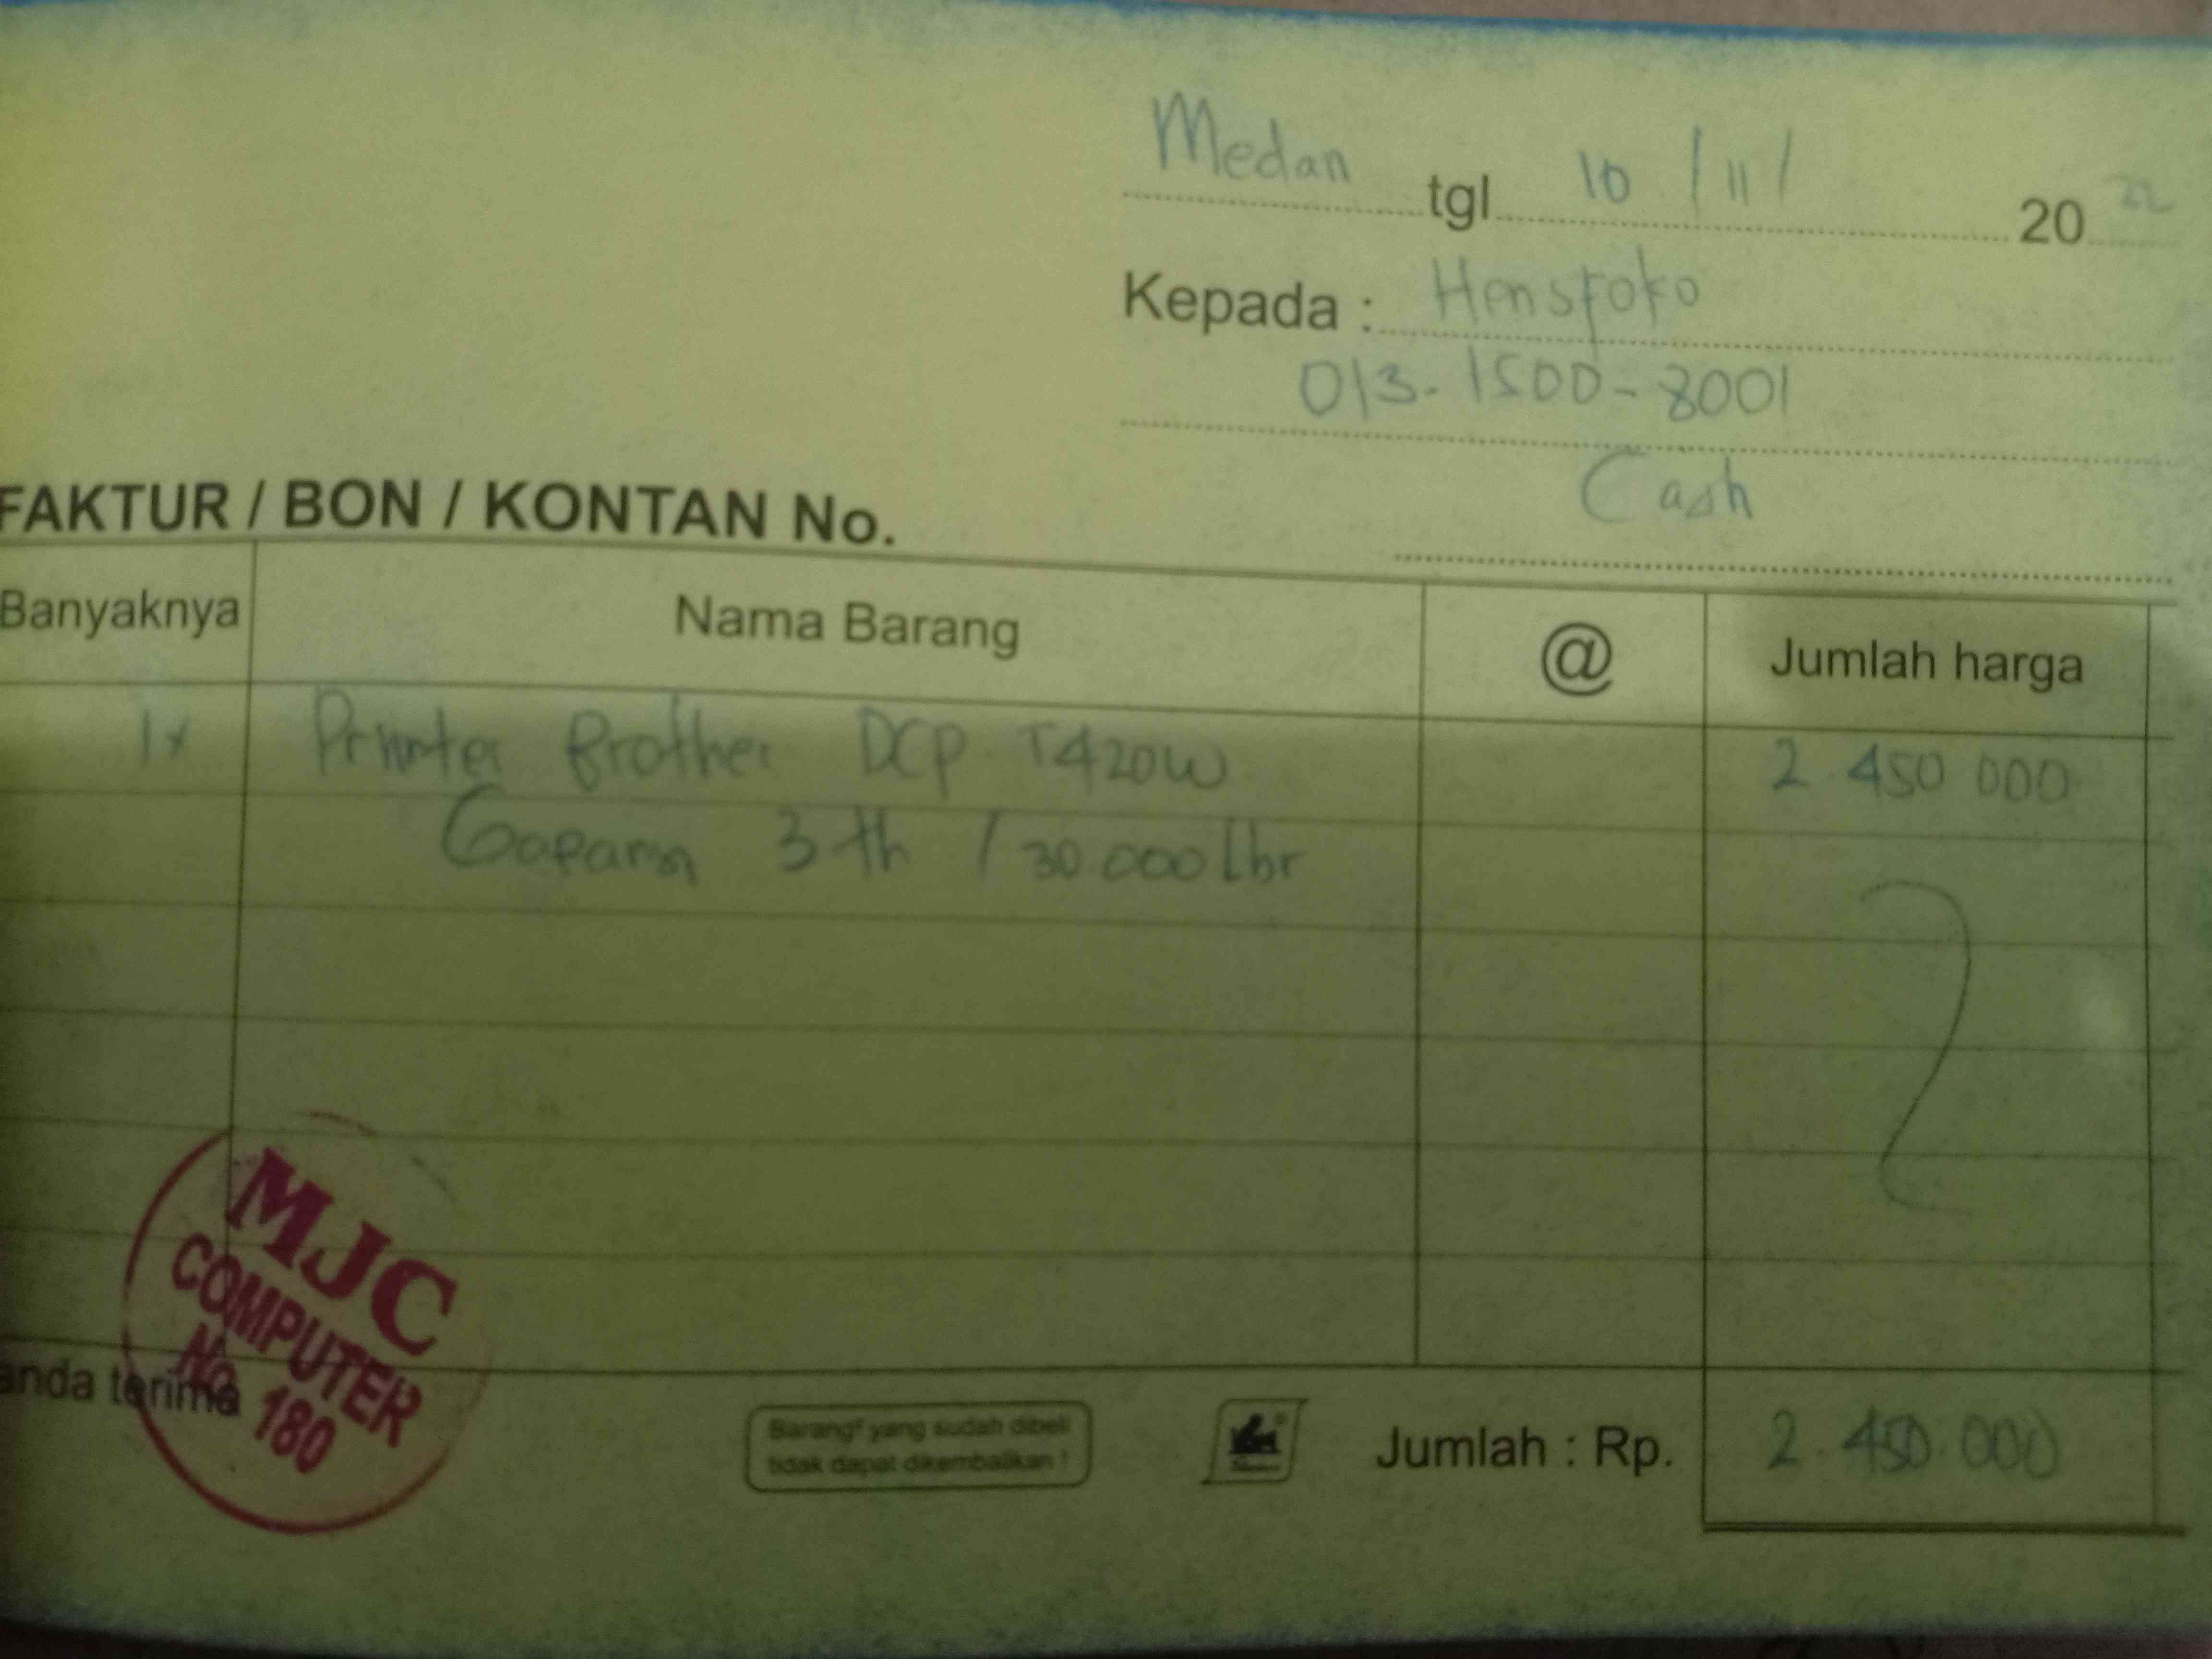 Medan tgl 10 / 11 / 20 22
Kepada : Hensfoto
013-1500-8001
Cash
FAKTUR / BON / KONTAN No.
Banyaknya Nama Barang @ Jumlah harga
1x Printer Brother DCP T420W 2.450 000
3 th / 30 000 lbr
MJC
COMPUTER
No 180
anda terima
Barang² yang sudah dibeli
tidak dapat dikembalikan !
Jumlah : Rp. 2.450.000